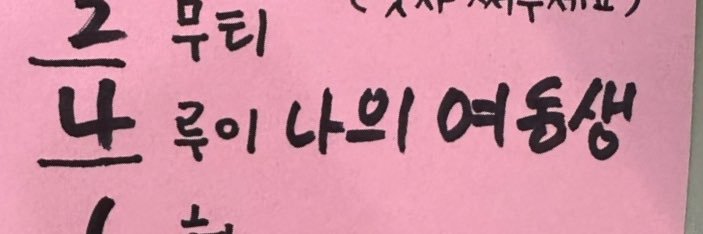 2 무티
4 루이 나의 여동생